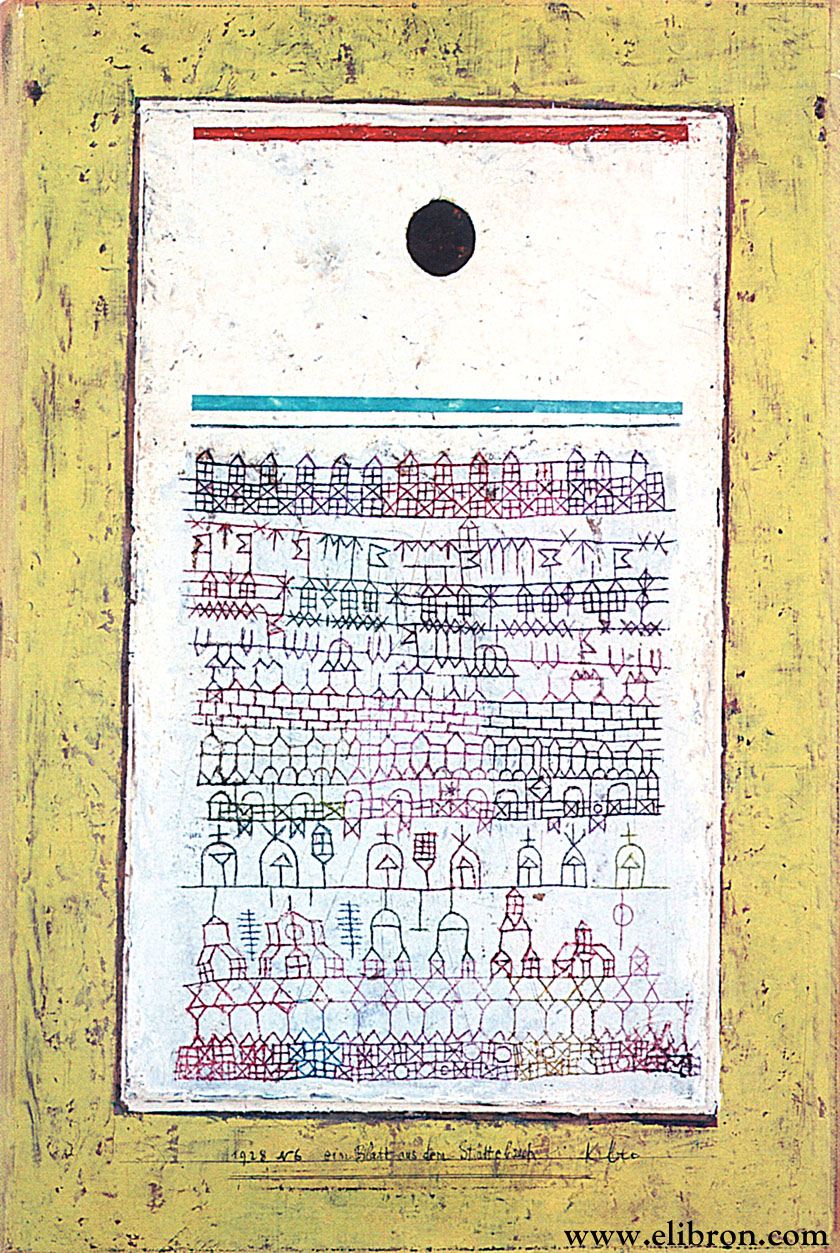 1928 N6 ein Blatt aus dem Städtebuch Klee
www.elibron.com